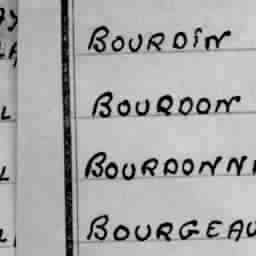 BOURDIN
BOURDON
BOURDONN
BOURGEAU